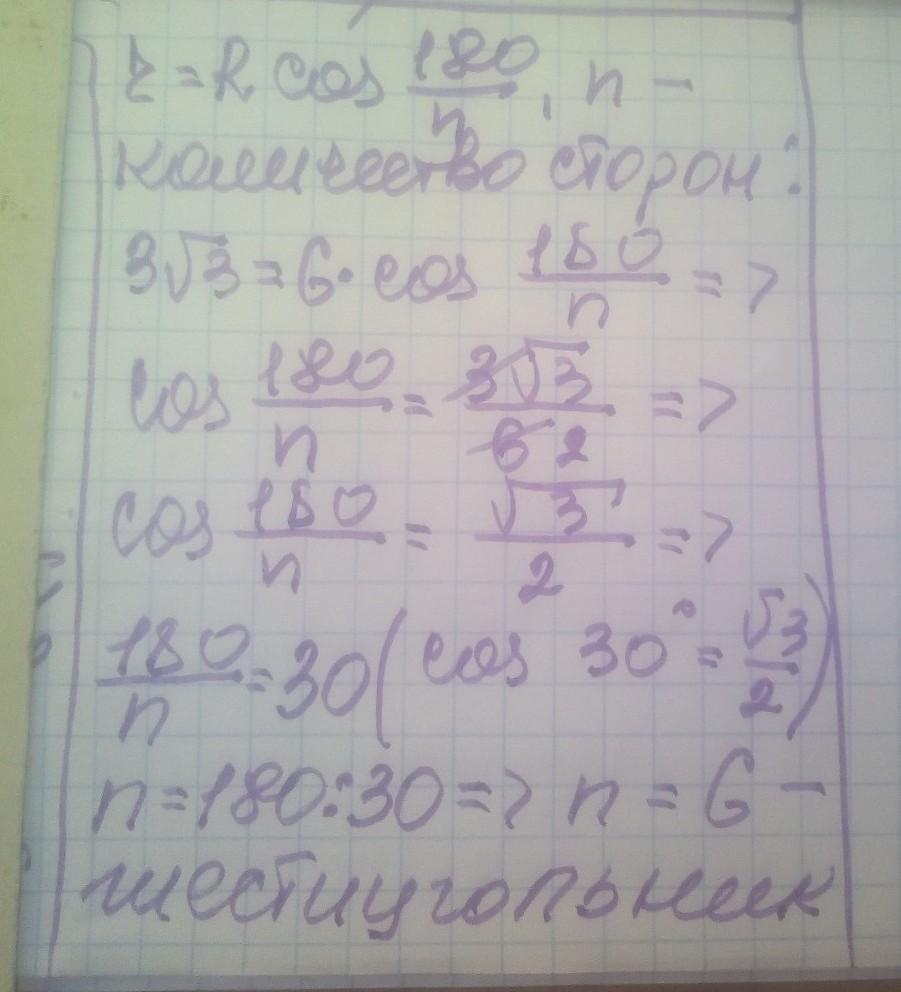 r = R cos 180/n, n –
количество сторон:
3√3 = 6 · cos 180/n =>
cos 180/n = 3√3/6 2 =>
cos 180/n = √3/2 =>
180/n = 30 (cos 30° = √3/2)
n = 180 : 30 => n = 6 –
шестиугольник